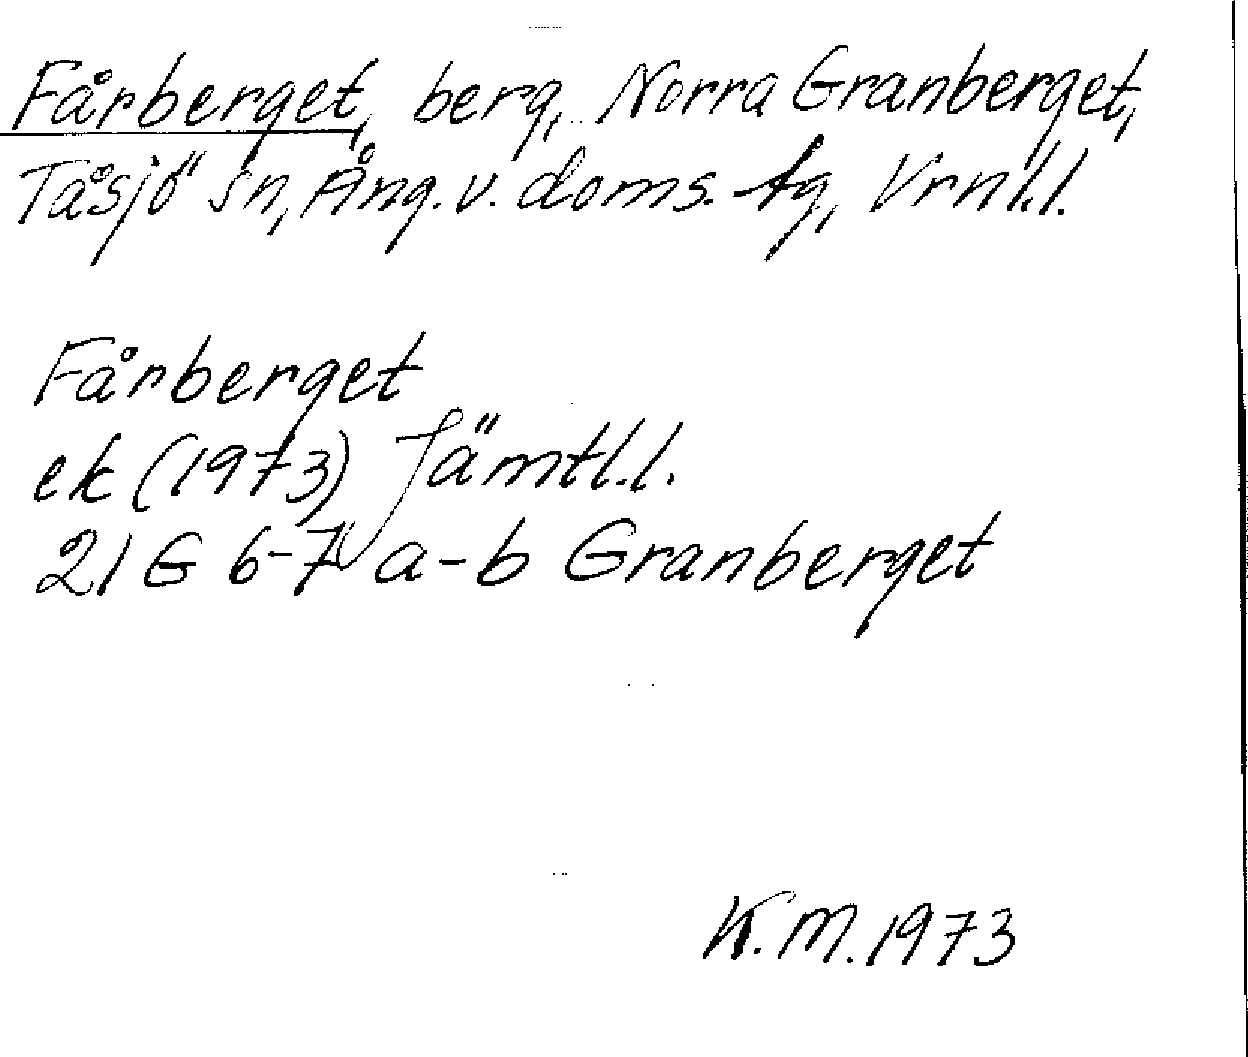 Fårberget, berg, Norra Granberget,
Tåsjö sn, Ång. v. doms. tg, Vrnl.l.
Fårberget
ek (1973) Jämtl.l.
21 G 6-7 a-b Granberget
K.M. 1973